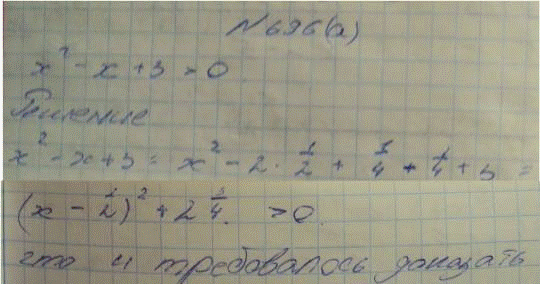 N696(а)
x² - x + 3 > 0
Решение
x² - x + 3 = x² - 2 · 1/2 + 1/4 - 1/4 + 3 =
(x - 1/2)² + 2 3/4. > 0.
что и требовалось доказать